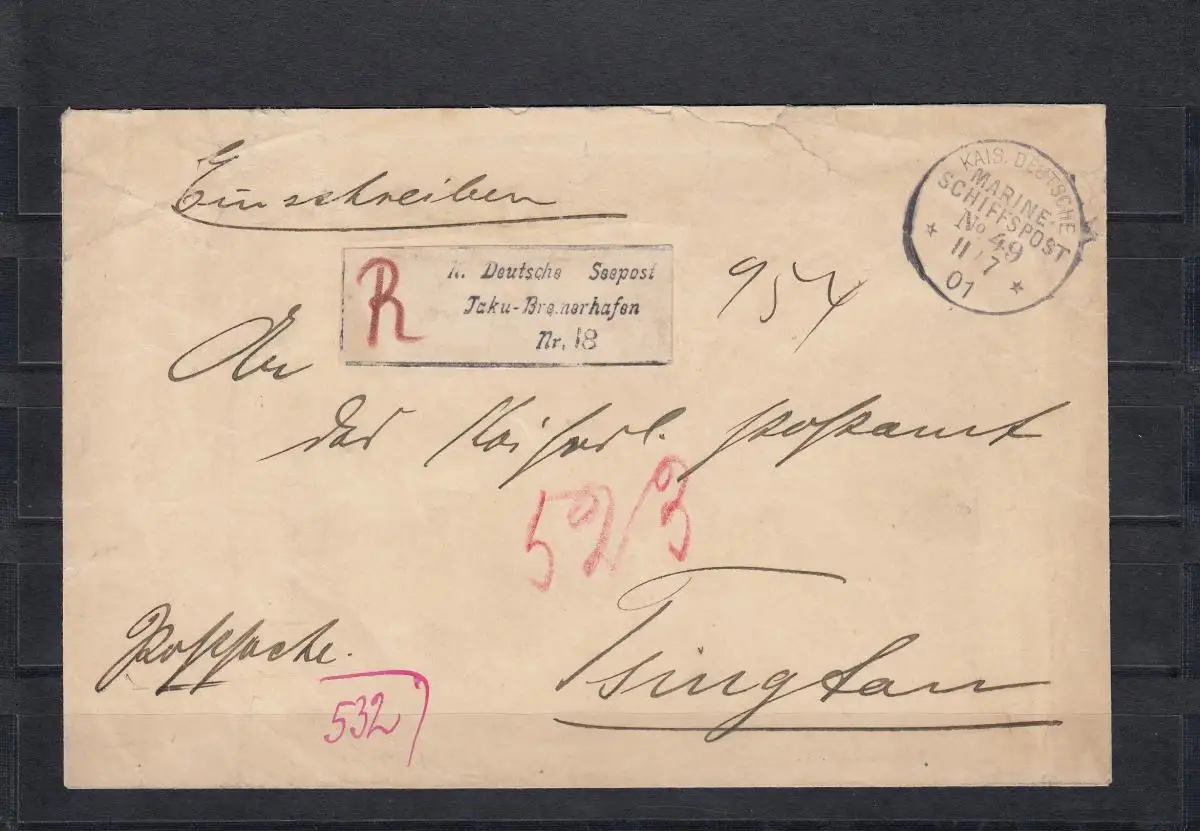 Einschreiben
KAIS. DEUTSCHE
MARINE-
SCHIFFSPOST
No 49
11/7
01
R
K. Deutsche Seepost
Taku-Bremerhafen
Nr. 18
954
An
das Kaiserl. Postamt
523
Tsingtau
Postsache.
532